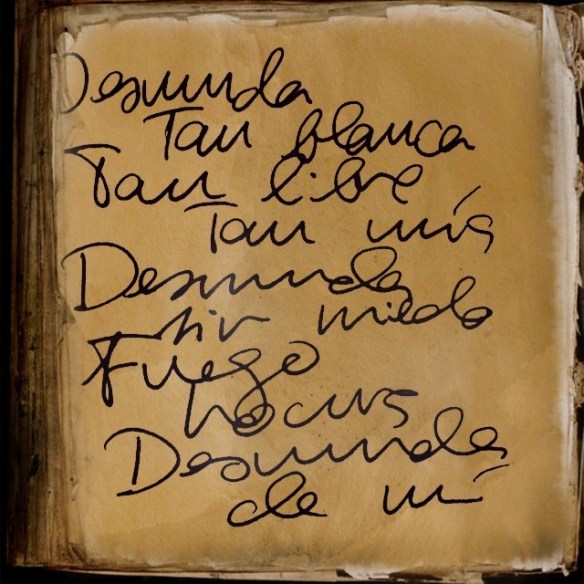 Desnuda
Tan blanca
Tan libre
Tan mía
Desnuda
sin miedo
Fuego
locura
Desnuda
de mí